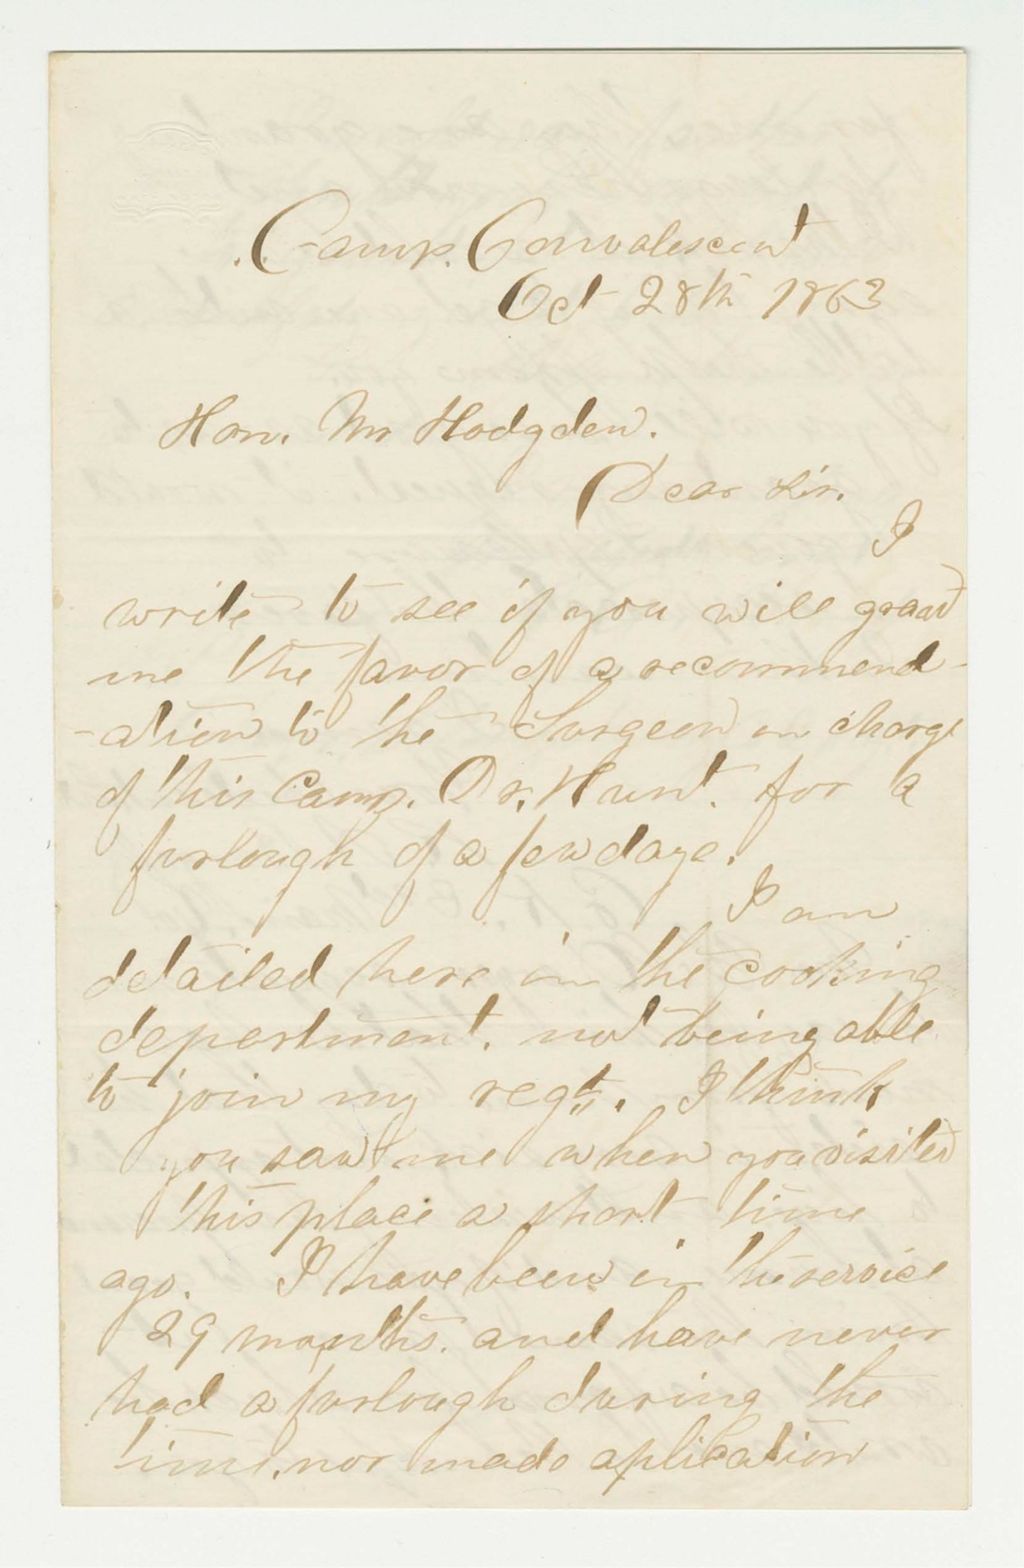 Camp. Convalescent
Oct 28th 1863
Hon. Mr Hodgden.
Dear Sir.
I
write to see if you will grant
me the favor of a recommend-
-ation to the Surgeon in charge
of this Camp. Dr. Hunt. for a
furlough of a few days.
I am
detailed here in the cooking
department. not being able
to join my regt. I think
you saw me when you visited
this place a short time
ago. I have been in the service
29 months. and have never
had a furlough during the
time, nor made aplication